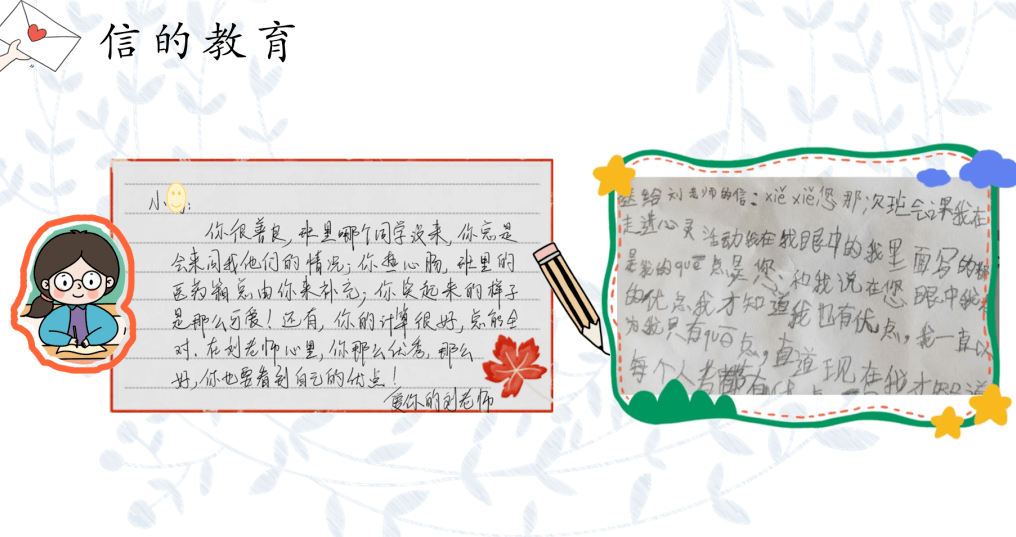 信的教育
小
你很善良，班里哪个同学没来，你总是
会来问我他们的情况；你热心肠，班里的
医药箱总由你来补充；你笑起来的样子
是那么可爱！还有，你的计算很好，总能全
对。在刘老师心里，你那么优秀，那么
好，你也要看到自己的优点！
爱你的刘老师
送给刘老师的信：xiè xiè您那次班会课我在
走进心灵活动我在我眼中的我里面写的
是我的que点是您，和我说在您眼中我
的优点我才知道我也有优点，我一直以
为我只有que点，直道现在我才
每个人者都有优点